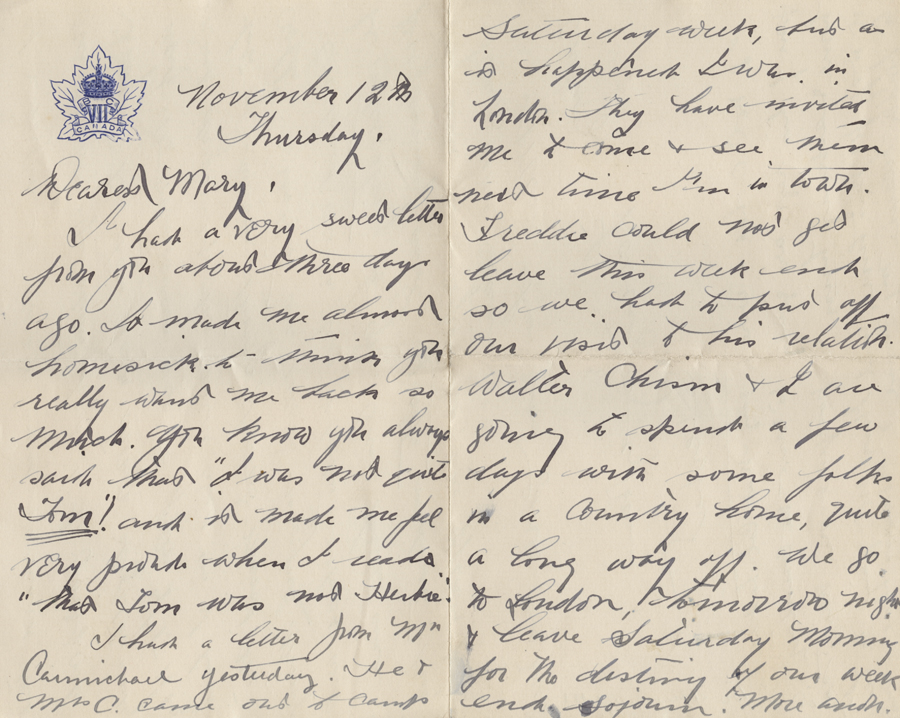 VII
CANADA
November 12th
Thursday.
Dearest Mary,
I had a very sweet letter
from you about three days
ago. It made me almost
homesick to think you
really want me back so
much. You know you always
said that "I was not quite
Tom"! and it made me feel
very proud when I read
"that Tom was not Herbie".
I had a letter from Mr
Carmichael yesterday. He &
Mrs C. came out to camp
Saturday week, but as
it happened I was in
London. They have invited
me to come & see them
next time I'm in town.
Freddie could not get
leave this week end
so we had to put off
our visit to his relation.
Walter Chism & I are
going to spend a few
days with some folks
in a country home, quite
a long way off. We go
to London, tomorrow night
& leave Saturday Morning
for the destiny of our week
end sojourn. More anon.